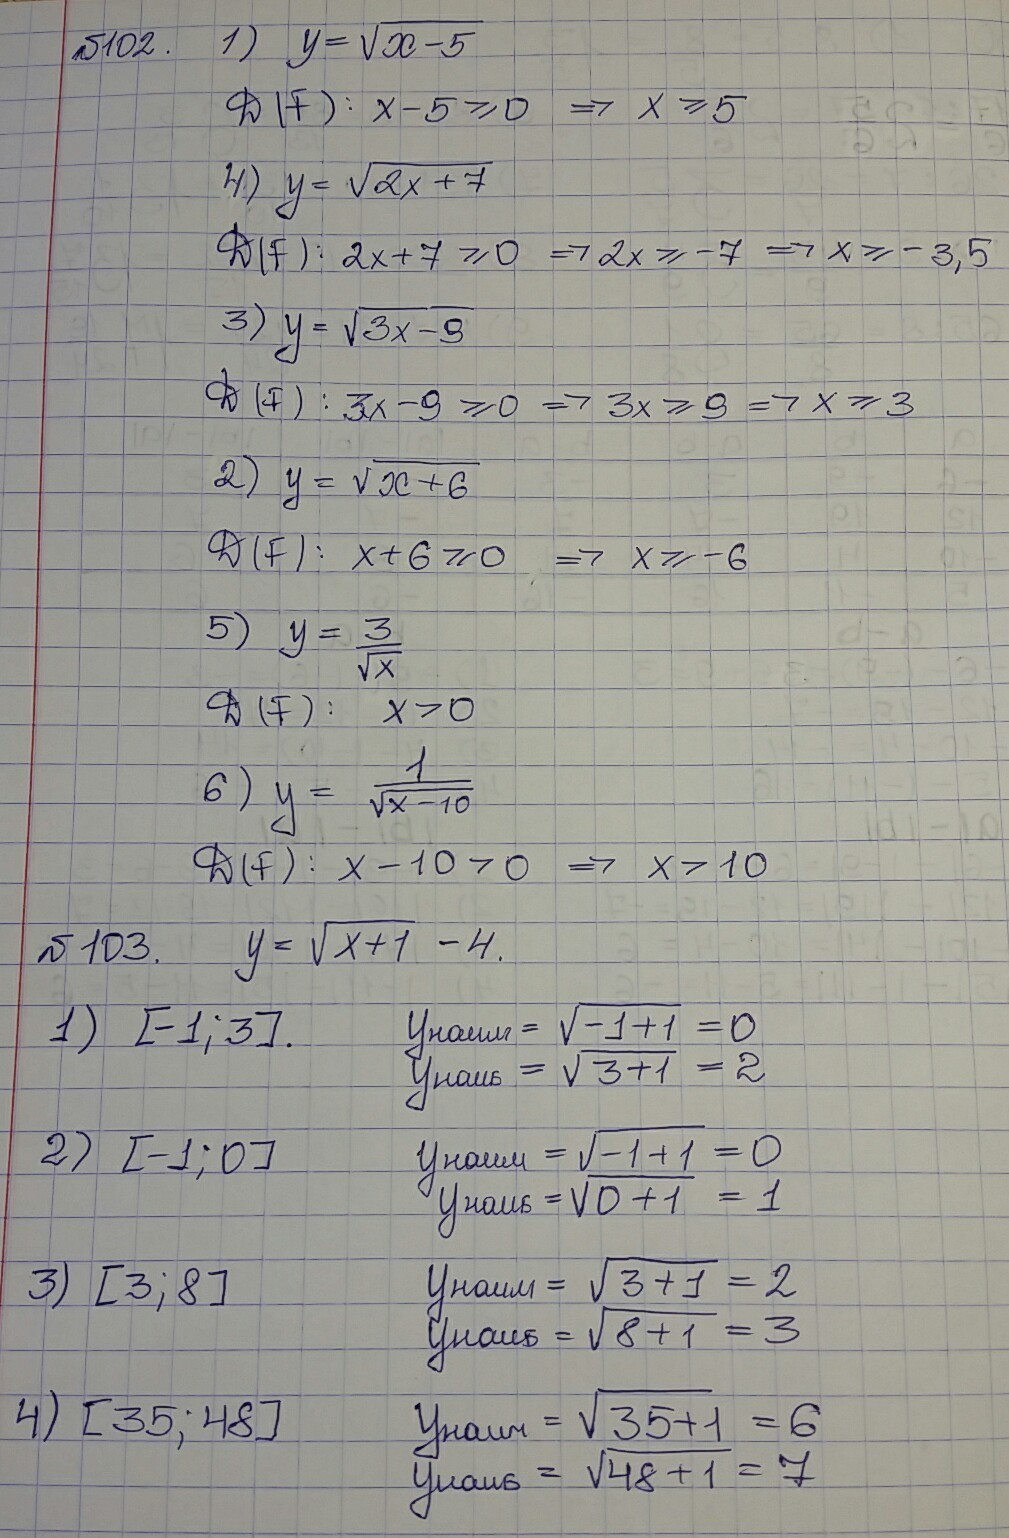 №102. 1) y = √x-5
D(F): x-5 ⩾ 0 => x ⩾ 5
4) y = √2x+7
D(F): 2x+7 ⩾ 0 => 2x ⩾ -7 => x ⩾ -3,5
3) y = √3x-9
D(F): 3x-9 ⩾ 0 => 3x ⩾ 9 => x ⩾ 3
2) y = √x+6
D(F): x+6 ⩾ 0 => x ⩾ -6
5) y = 3/√x
D(F): x > 0
6) y = 1/√x-10
D(F): x-10 > 0 => x > 10
№103. y = √x+1 - 4.
1) [-1;3]. Yнаим = √-1+1 = 0
Yнаиб = √3+1 = 2
2) [-1;0] Yнаим = √-1+1 = 0
Yнаиб = √0+1 = 1
3) [3;8] Yнаим = √3+1 = 2
Yнаиб = √8+1 = 3
4) [35;48] Yнаим = √35+1 = 6
Yнаиб = √48+1 = 7